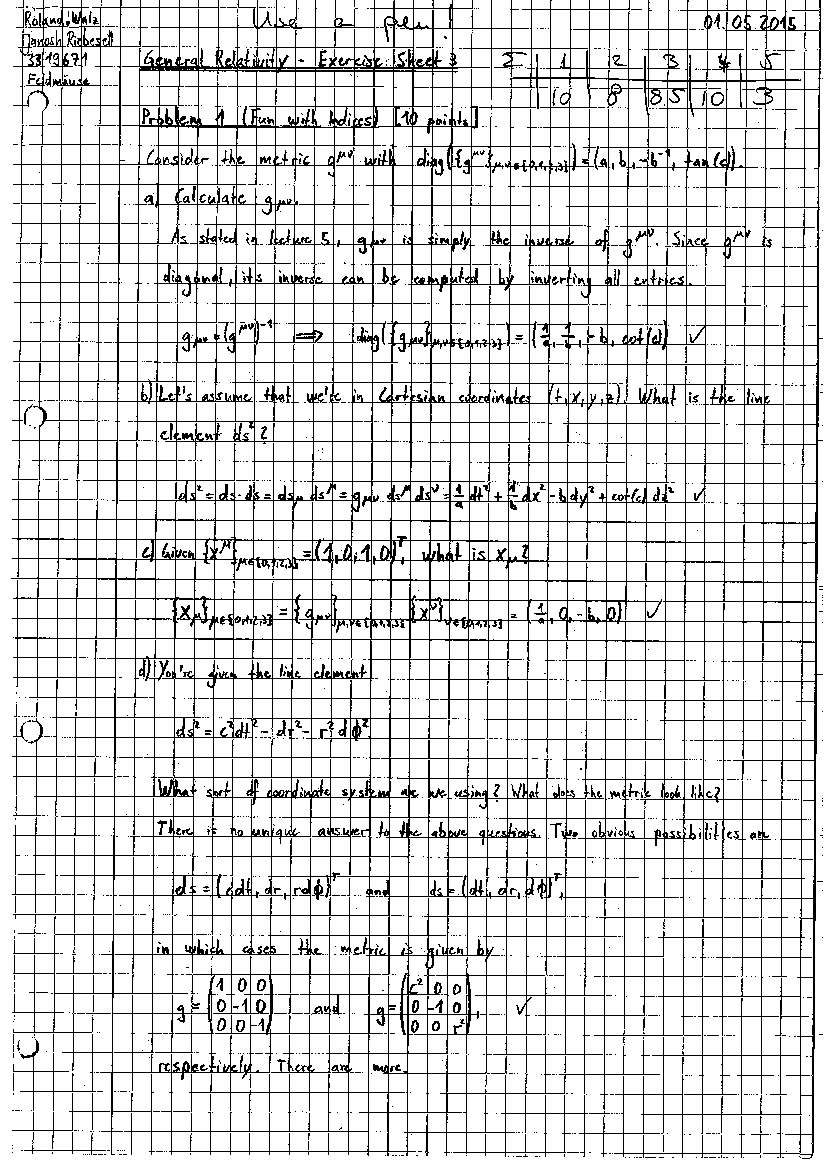 Roland Walz
Janosh Riebesell
3319671
Feldmäuse
Use a pen!
01.05.2015
General Relativity - Exercise Sheet 3
Σ 1 2 3 4 5
10 8 8.5 10 3
Problem 1 (Fun with Indices) [10 points]
Consider the metric g^{μν} with diag({g^{μν}}_{μ,ν∈{0,1,2,3}}) = (a, b, -b^{-1}, tan(c)).
a) Calculate g_{μν}.
As stated in lecture 5, g_{μν} is simply the inverse of g^{μν}. Since g^{μν} is
diagonal, its inverse can be computed by inverting all entries.
g_{μν} = (g^{μν})^{-1} ⟹ diag({g_{μν}}_{μ,ν∈{0,1,2,3}}) = (1/a, 1/b, -b, cot(c)) ✓
b) Let's assume that we're in Cartesian coordinates (t,x,y,z). What is the line
element ds²?
ds² = ds·ds = ds_μ ds^μ = g_{μν} ds^μ ds^ν = 1/a dt² + 1/b dx² - b dy² + cot(c) dz² ✓
c) Given {x^μ}_{μ∈{0,1,2,3}} = (1,0,1,0)^T, what is x_μ?
{x_μ}_{μ∈{0,1,2,3}} = {g_{μν}}_{μ,ν∈{0,1,2,3}} {x^ν}_{ν∈{0,1,2,3}} = (1/a, 0, -b, 0) ✓
d) You're given the line element
ds² = c²dt² - dr² - r²dϕ²
What sort of coordinate system are we using? What does the metric look like?
There is no unique answer to the above questions. Two obvious possibilities are
ds = (c dt, dr, r dϕ)^T and ds = (dt, dr, dϕ)^T,
in which cases the metric is given by
g = (1 0 0; 0 -1 0; 0 0 -1) and g = (c² 0 0; 0 -1 0; 0 0 r²), ✓
respectively. There are more.